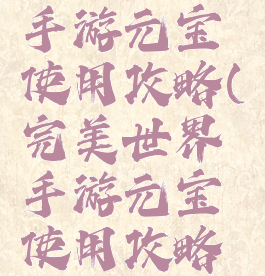 手游元宝
使用攻略(
完美世界
手游元宝
使用攻略